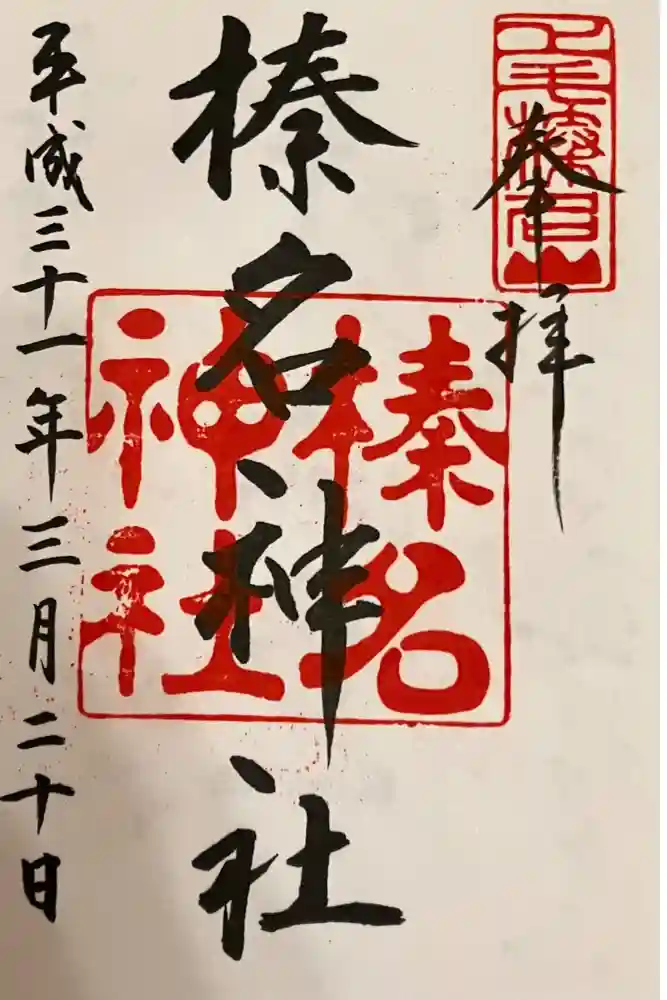 奉拝
上毛榛名山
榛名神社
榛名神社
平成三十一年三月二十日